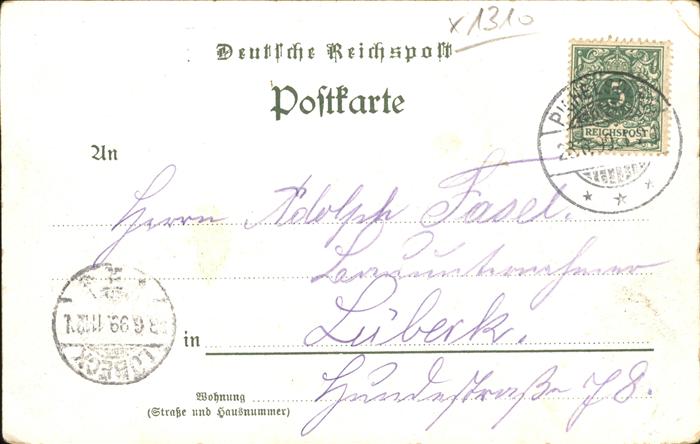 x 1310
Deutsche Reichspost
Postkarte
5
REICHSPOST
An
Herrn Adolph Fasel.
Bauunternehmer
in Lübeck.
LÜBECK
Wohnung
(Straße und Hausnummer)
Hundestraße 78.